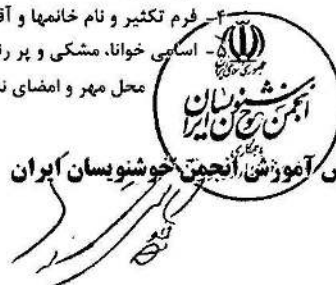 ۴- فرم تکثیر و نام خانمها و آق
۵- اسامی خوانا، مشکی و پر رن
محل مهر و امضای ن
جمهوری اسلامی ایران
انجمن خوشنویسان ایران
آموزش انجمن خوشنویسان ایران